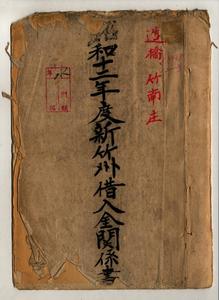 造橋、竹南庄
和十二年度新竹州借入金関係書